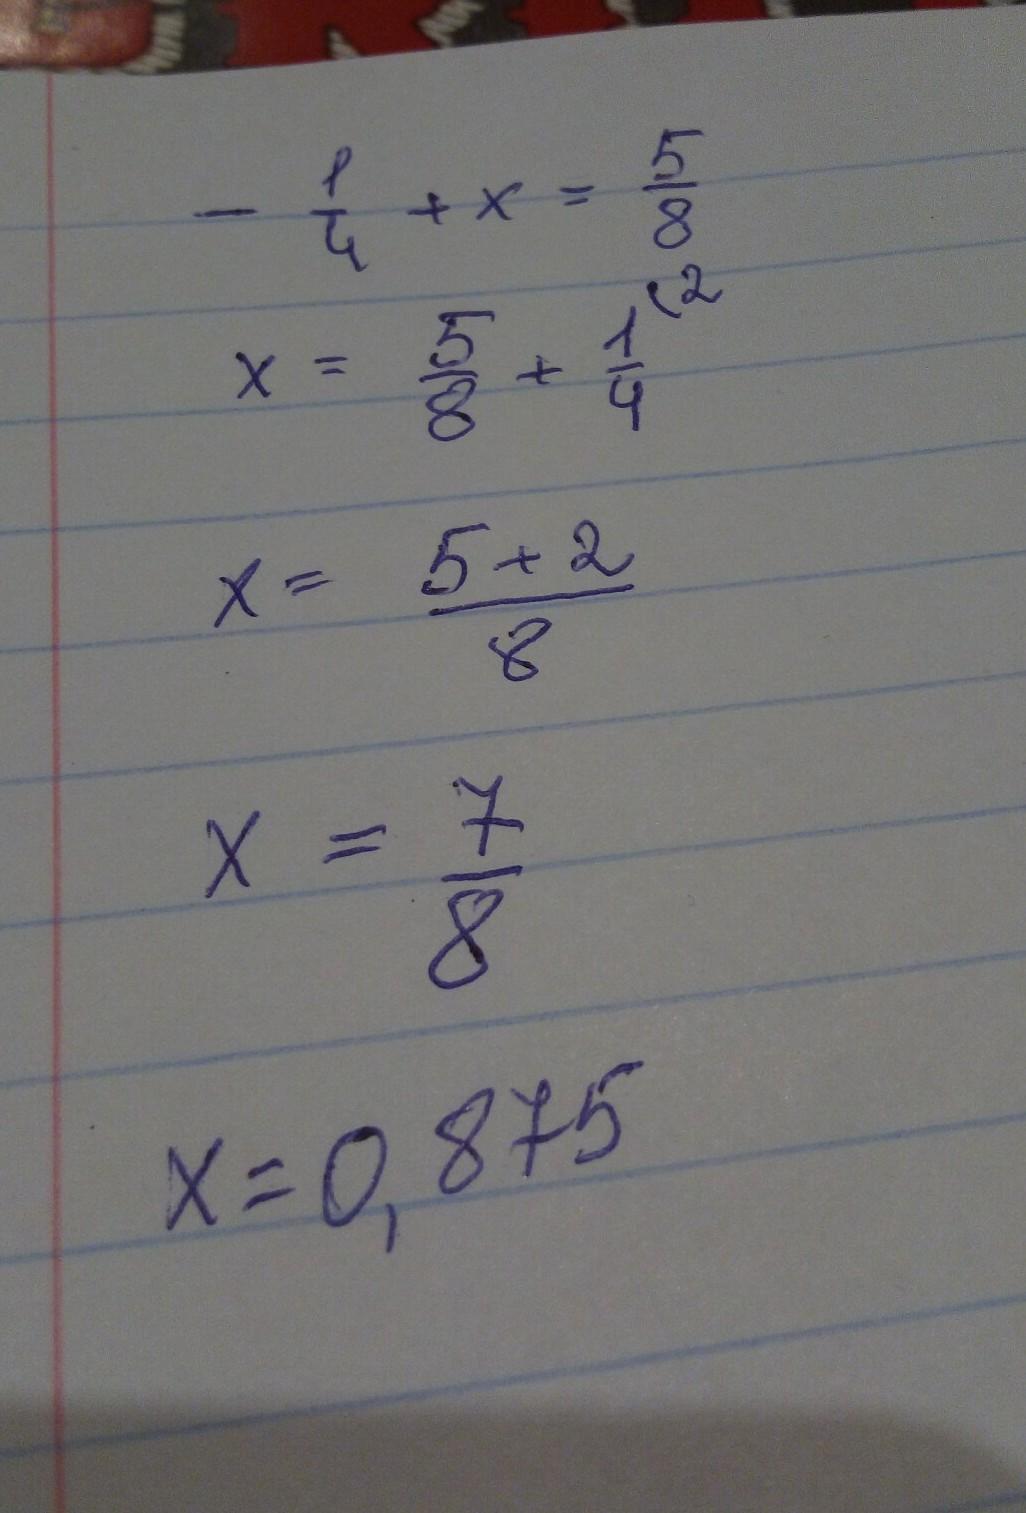 - 1/4 + x = 5/8
x = 5/8 + 1/4 (2
x = (5+2)/8
x = 7/8
x = 0,875